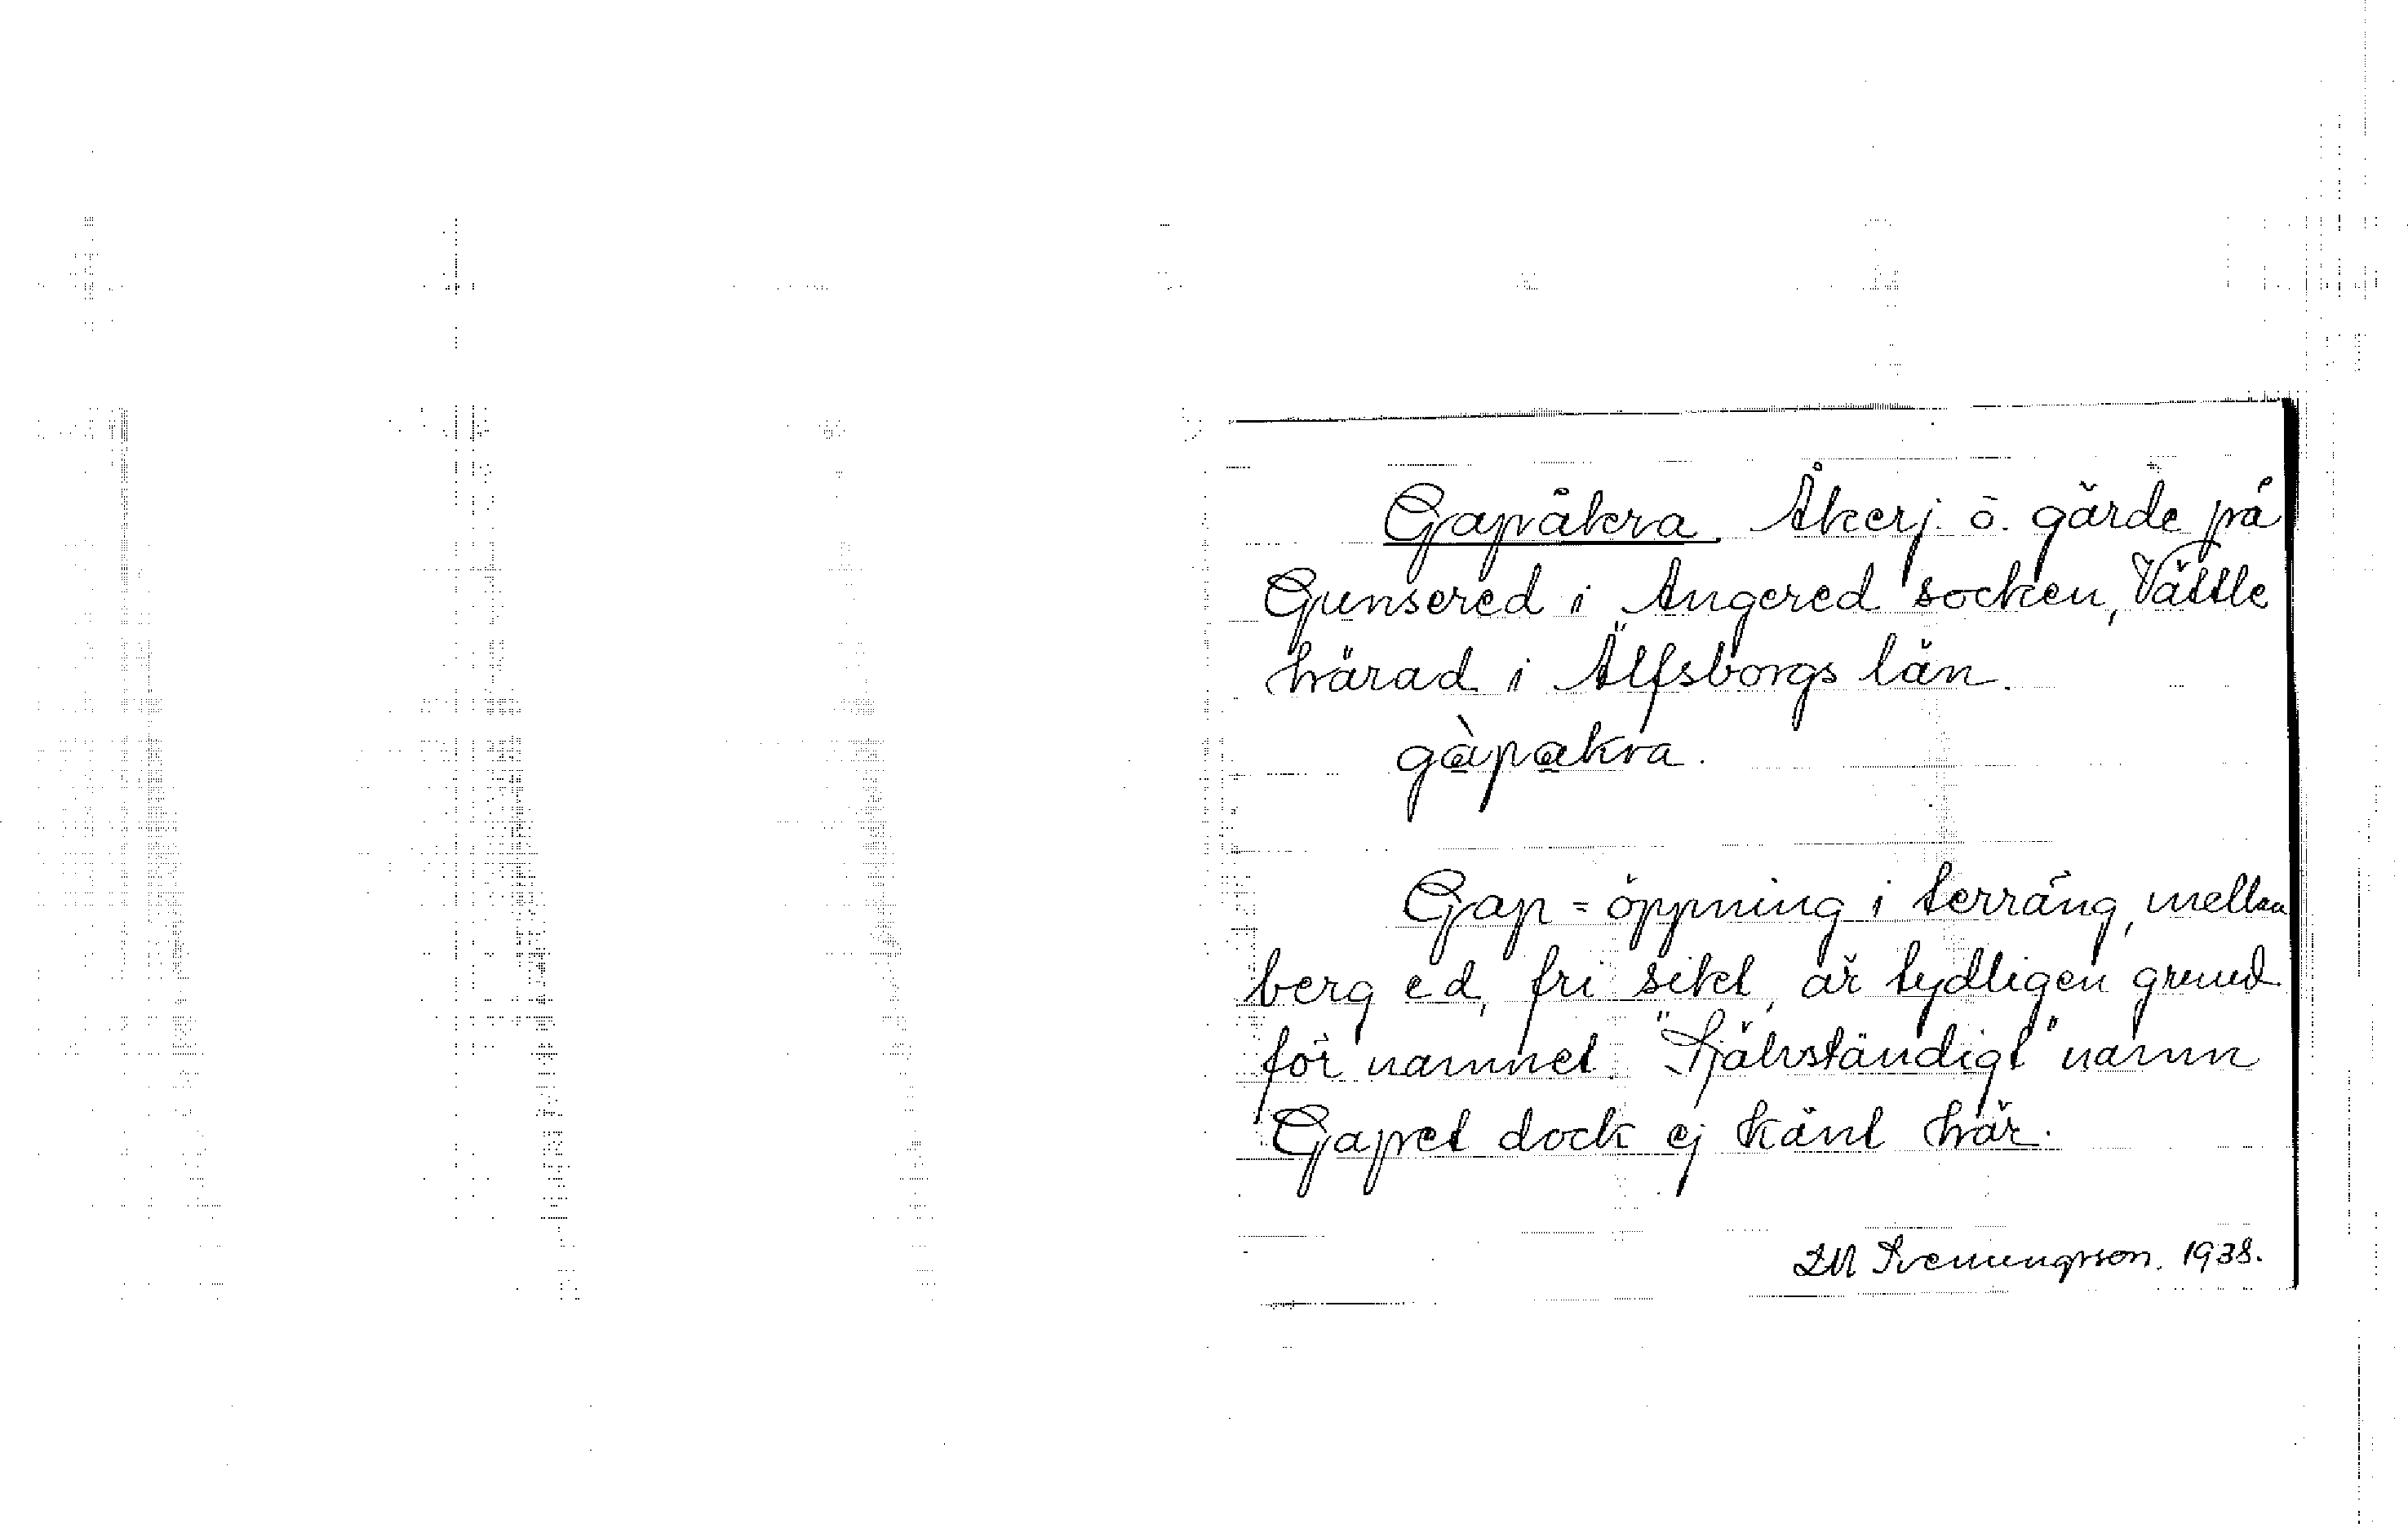 Gapåkra. Åkerj. ö. gärde på
Gunsered i Angered socken, Vättle
härad i Älfsborgs län.
gàpakra.
Gap = öppning i terräng, mellan
berg e.d., fri sikt, är tydligen grund
för namnet. "Självständigt" namn
Gapet dock ej känt här.
Svenungsson. 1938.